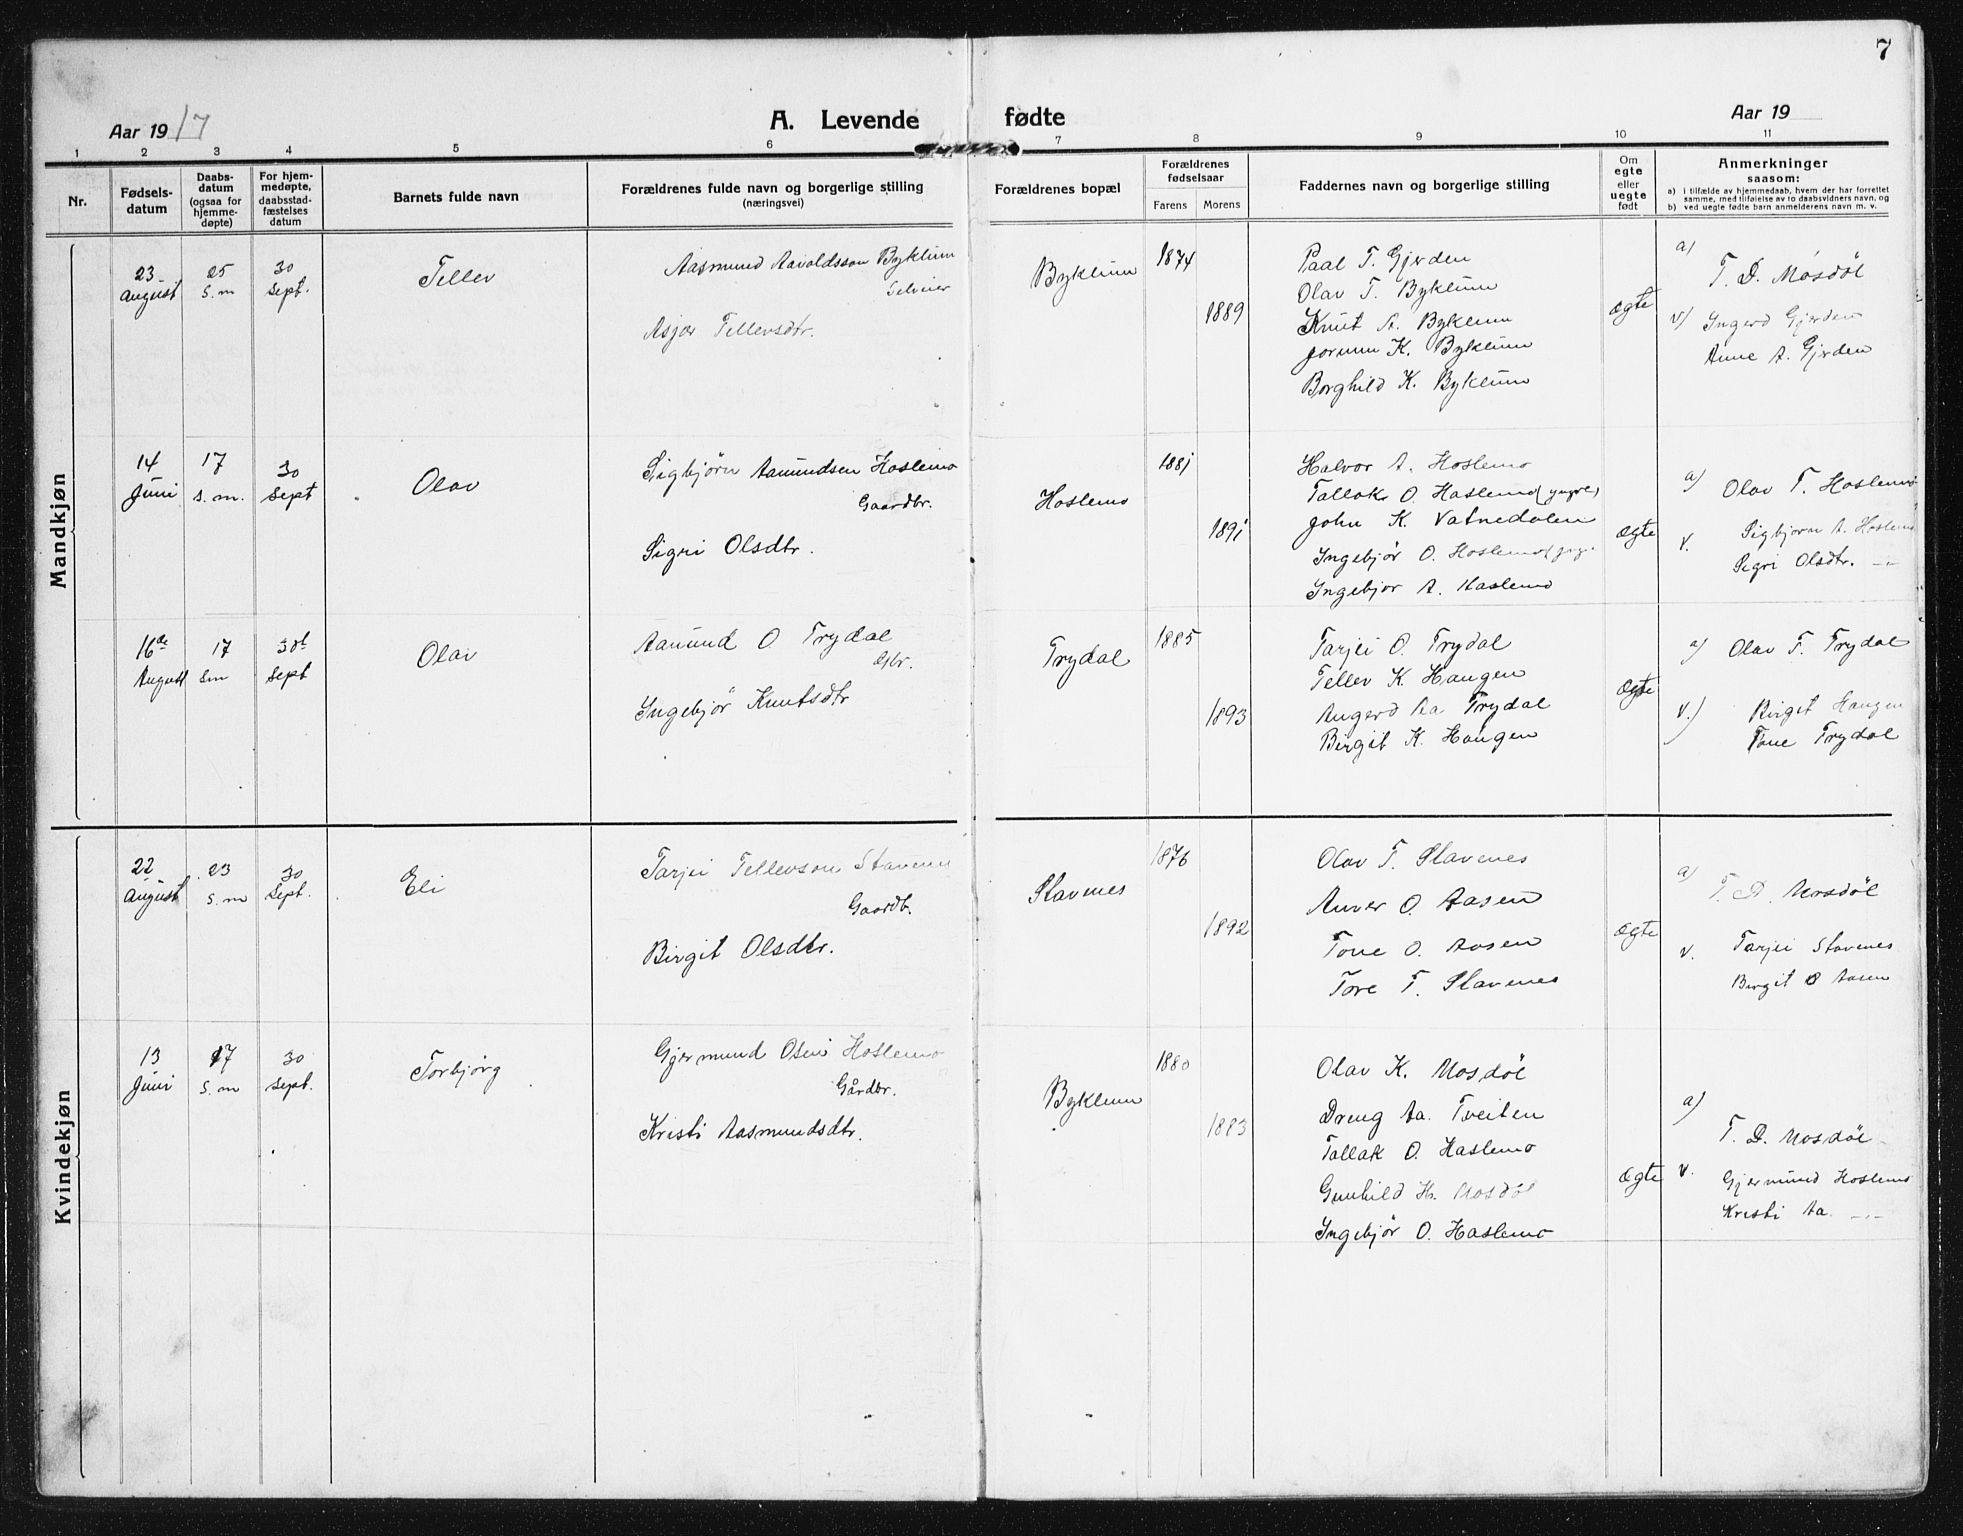 7
Aar 1917
A. Levende fødte
Aar 19
1 2 3 4 5 6 7 8 9 10 11
Nr.
Fødsels-
datum
Daabs-
datum
(ogsaa for
hjemme-
døpte)
For hjem-
medøpte,
daabsstad-
fæstelses
datum
Barnets fulde navn
Forældrenes fulde navn og borgerlige stilling
(næringsvei)
Forældrenes bopæl
Forældrenes
fødselsaar
Farens Morens
Faddernes navn og borgerlige stilling
Om
egte
eller
uegte
født
Anmerkninger
saasom:
a) i tilfælde av hjemmedaab, hvem der har forrettet
samme, med tilføielse av to daabsvidners navn, og
b) ved uegte fødte barn anmelderens navn m. v.
Mandkjøn
23
August
25
s.m
30
Sept.
Tellev
Aasmund Aavoldsson Byklum
Selveier
Asjær Tellevsdtr.
Byklum
1874
1889
Paal T. Gjerden
Olav T. Byklum
Knut A. Byklum
Jorunn K. Byklum
Borghild K. Byklum
ægte
a)
T. D. Mosdøl
v) Ingerd Gjerden
Anne A. Gjerden
14
Juni
17
s.m.
30
Sept
Olav
Sigbjørn Aamundsen Hoslemo
Gaardbr.
Sigri Olsdtr.
Hoslemo
1881
1891
Halvor A. Hoslemo
Tallak O. Haslemo (yngre)
John K. Vatnedalen
Ingebjør O. Hoslemo
Ingebjor A. Haslemo
ægte
a) Olav T. Hoslemo
v. Sigbjørn A. Hoslemo
Sigri Olsdtr. -"-
16de
August
17
sm
30t
Sept
Olav
Aamund O Trydal
Gbr.
Ingebjør Knutsdtr
Trydal
1885
1893
Tarjei O. Trydal
Tellev K. Haugen
Angerd Aa Trydal
Birgit K. Haugen
ægte
a) Olav T. Trydal
v.) Birgit Haugen
Tone Trydal
Kvindekjøn
22
August
23
s.m
30
Sept.
Eli
Tarjei Tellevson Stavenes
Gaardb.
Birgit Olsdtr.
Stavenes
1876
1892
Olav T. Stavenes
Anver O. Aasen
Tone O. Aasen
Tore T. Stavenes
ægte
a)
T. D. Mosdøl
v. Tarjei Stavenes
Birgit O Aasen
13
Juni
17
s.m
30
Sept.
Torbjørg
Gjermund Hoslemo
Gårdbr.
Kristi Aasmundsdtr.
Byklum
1880
1883
Olav K. Mosdøl
Dreng Aa. Tveiten
Tallak O. Haslemo
Gunhild H. Mosdøl
Ingebjør O. Haslemo
ægte
a)
T. D. Mosdøl
v. Gjermund Hoslemo
Kristi Aa. -"-